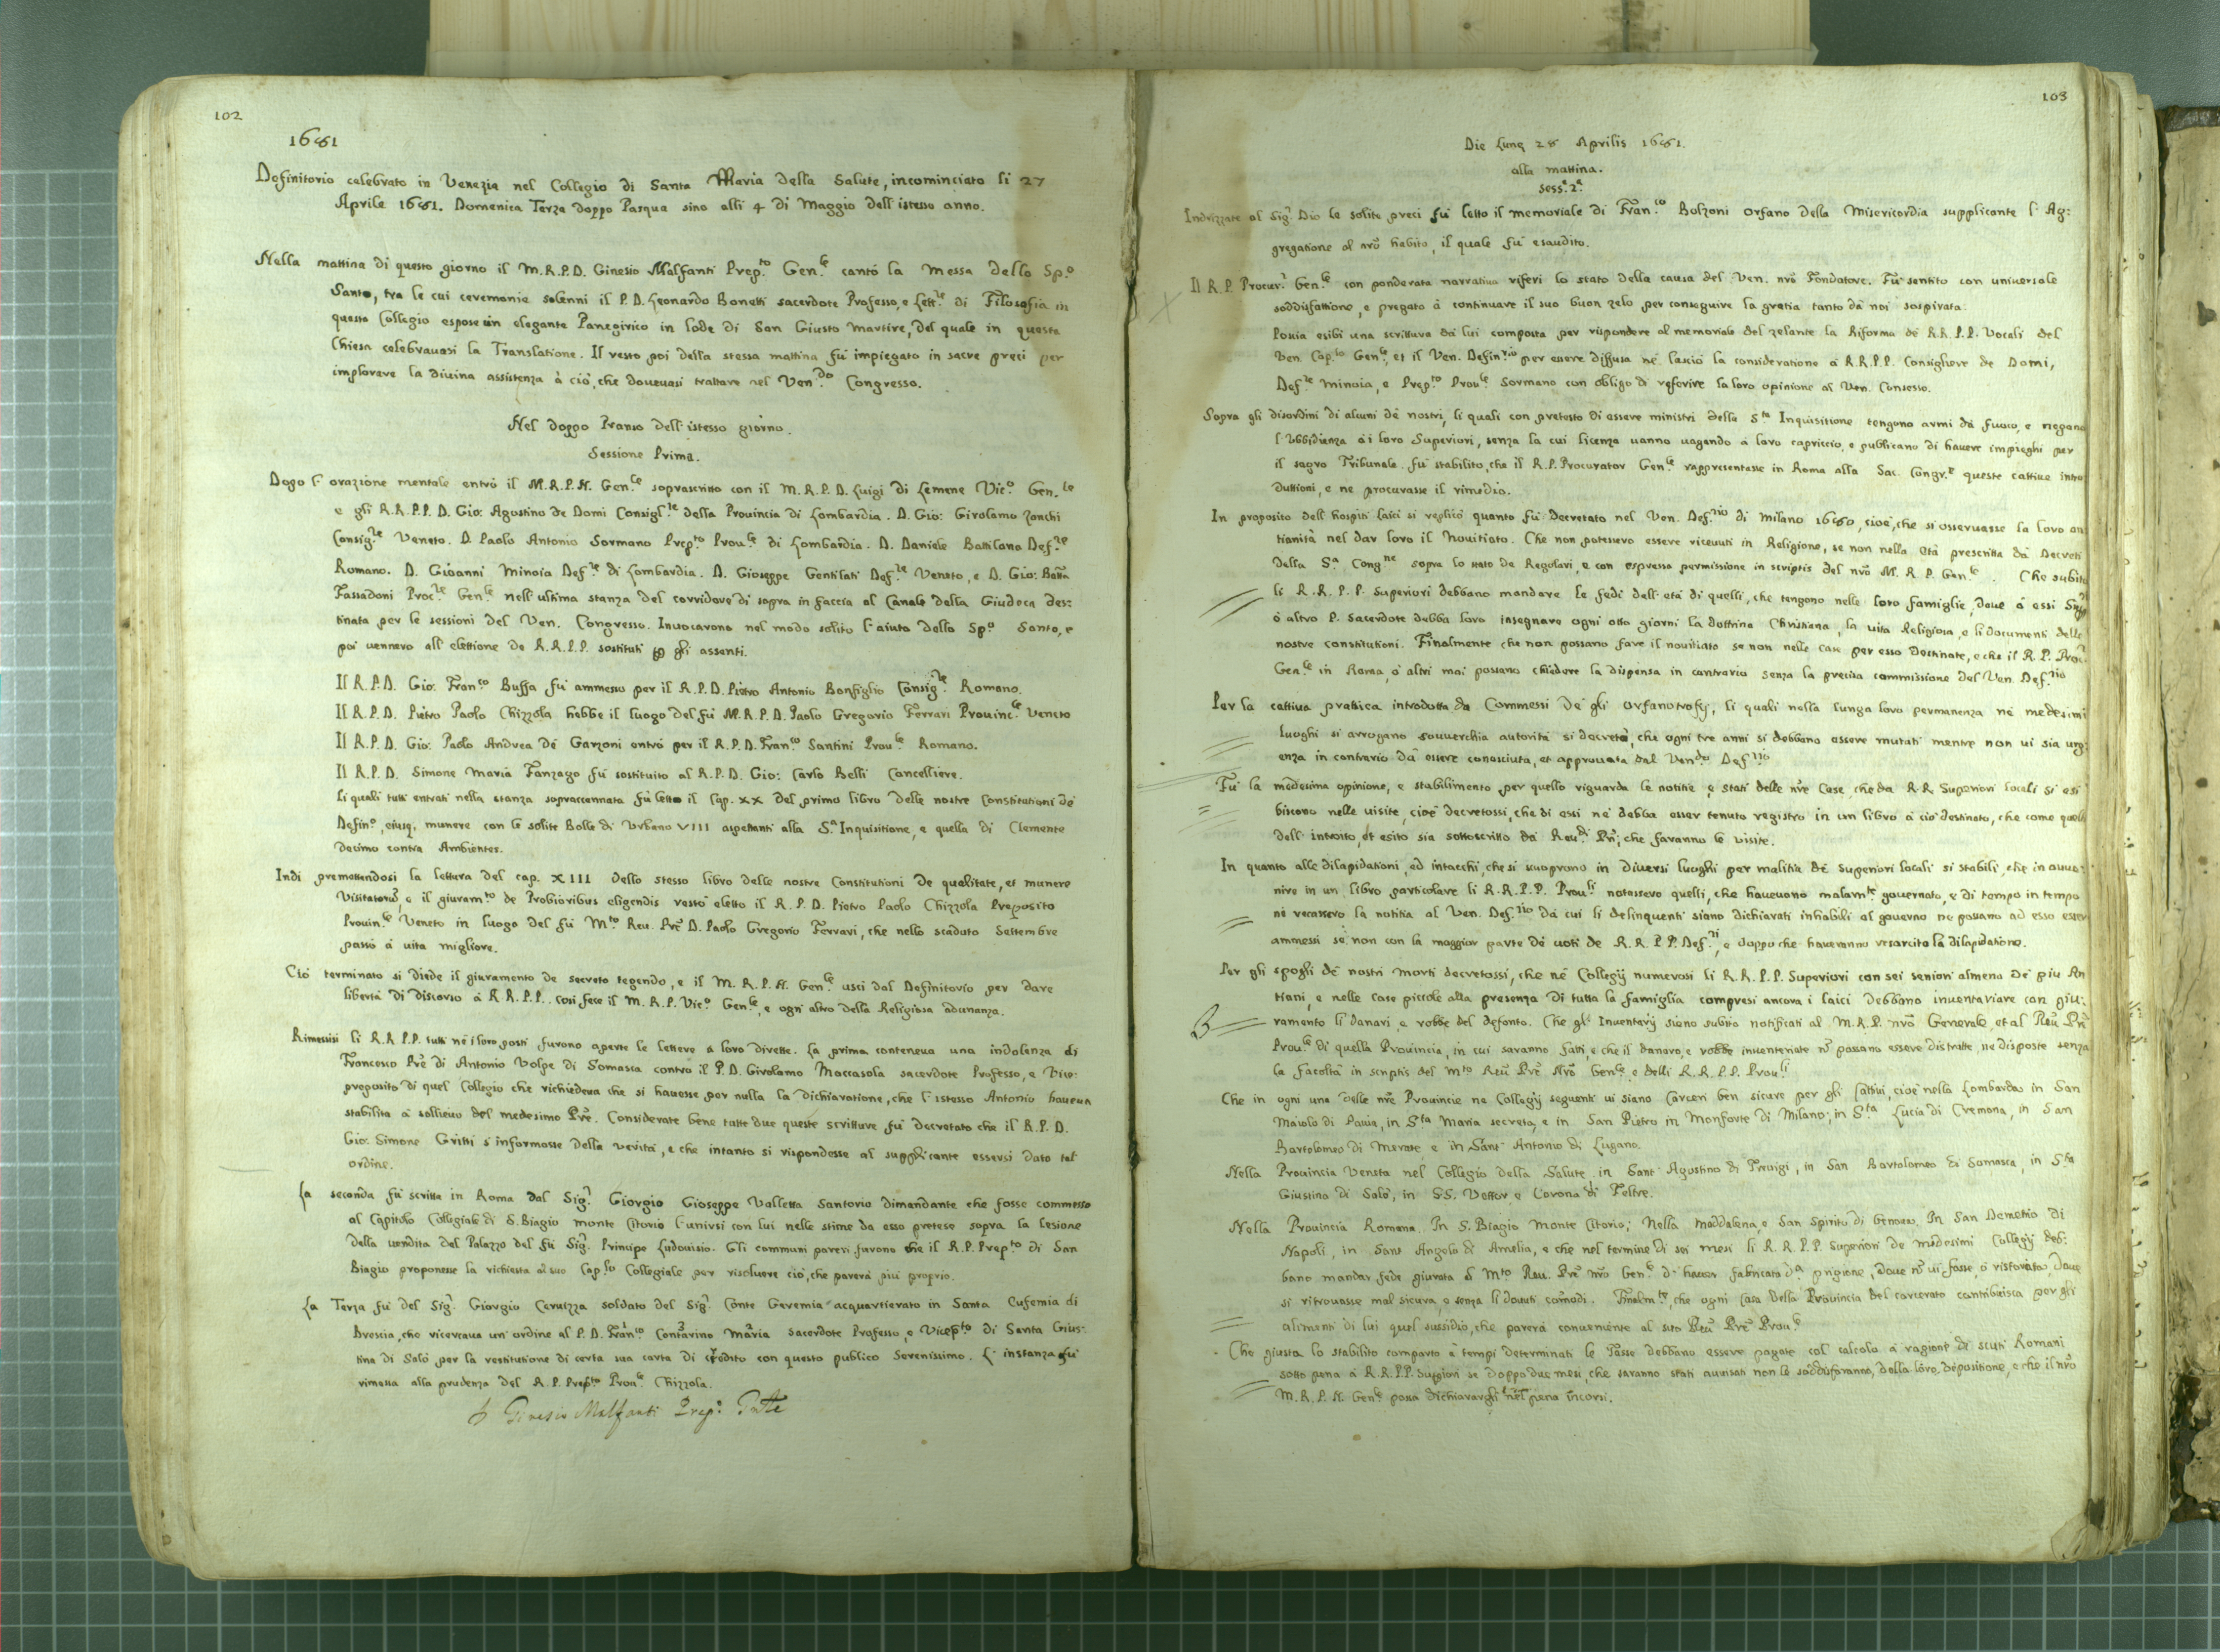 102
1681
Definitorio celebrato in Venezia nel Collegio di Santa Maria della Salute, incominciato li 27
Aprile 1681. Domenica Terza doppo Pasqua sino alli 4 di Maggio dell'istesso anno.
Nella mattina di questo giorno il M.R.P.D. Ginesio Malfanti Prep.to Gen.le cantò la Messa dello Sp.o
Santo, tra le cui ceremonie solenni il P.D. Leonardo Bonetti sacerdote Professo, e Lett.re di Filosofia in
questo Collegio espose un elegante Panegirico in lode di San Giusto Martire, del quale in questa
Chiesa celebravasi la Translatione. Il resto poi della stessa mattina fù impiegato in sacre preci per
implorare la divina assistenza à ciò, che dovevasi trattare nel Ven.do Congresso.
Nel doppo Pranso dell'istesso giorno.
Sessione Prima.
Dopo l'orazione mentale entrò il M.R.P.N. Gen.le soprascritto con il M.R.P.D. Luigi di Lemene Vic.o Gen.le
e gli R.R.P.P. D. Gio: Agostino de Domi Consigl.re della Provincia di Lombardia. D. Gio: Girolamo Zonchi
Consig.re Veneto. D. Paolo Antonio Sormano Prep.to Prov.le di Lombardia. D. Daniele Battilana Def.re
Romano. D. Gioanni Minoia Def.re di Lombardia. D. Gioseppe Gentilati Def.re Veneto, e D. Gio: Batta
Fassadoni Proc.re Gen.le nell'ultima stanza del corridore di sopra in faccia al Canale della Giudeca des:
tinata per le sessioni del Ven. Congresso. Invocarono nel modo solito l'aiuto dello Sp.o Santo, e
poi vennero all'elettione de R.R.P.P. sostituti p gli assenti.
Il R.P.D. Gio: Fran.co Buffa fù ammesso per il R.P.D. Pietro Antonio Bonfiglio Consig.re Romano.
Il R.P.D. Pietro Paolo Chizzola hebbe il luogo del fù M.R.P.D. Paolo Gregorio Ferrari Provinc.le Veneto
Il R.P.D. Gio: Paolo Andrea de Garzoni entrò per il R.P.D. Fran.co Santini Prov.le Romano.
Il R.P.D. Simone Maria Fanzago fù sostituito al R.P.D. Gio: Carlo Belli Cancelliere.
Li quali tutti entrati nella stanza sopraccennata fù letto il Cap. XX del primo libro delle nostre Constitutioni de
Defin.o, eiusq. munere con le solite Bolle di Urbano VIII aspettanti alla S.a Inquisitione, e quella di Clemente
decimo contra Ambientes.
Indi premettendosi la lettura del cap. XIII dello stesso libro delle nostre Constitutioni De qualitate, et munere
Visitatorũ, e il giuram.to de Probioribus eligendis restò eletto il R.P.D. Pietro Paolo Chizzola Preposito
Provin.le Veneto in luogo del fù M.to Rev. Prẽ D. Paolo Gregorio Ferrari, che nello scaduto Settembre
passò à vita migliore.
Ciò terminato si diede il giuramento de secreto tegendo, e il M.R.P.N. Gen.le uscì dal Definitorio per dare
libertà di discorso à R.R.P.P. così fece il M.R.P. Vic.o Gen.le, e ogn'altro della Religiosa adunanza.
Rimessisi li R.R.P.P. tutti nè i loro posti furono aperte le lettere à loro dirette. La prima conteneva una indolenza di
Francesco Prẽ di Antonio Volpe di Somasca contro il P.D. Girolamo Maccasola sacerdote Professo, e Vice:
preposito di quel Collegio che richiedeva che si havesse per nulla la dichiaratione, che l'istesso Antonio haveva
stabilita à sollievo del medesimo Prẽ. Considerate bene tutte due queste scritture fù decretato che il R.P.D.
Gio: Simone Gritti s'informasse della verità, e che intanto si rispondesse al supplicante essersi dato tal
ordine.
La seconda fù scritta in Roma dal Sig.r Giorgio Gioseppe Valletta Santorio dimandante che fosse commesso
al Capitolo Collegiale di S. Biagio monte Citorio l'unirsi con lui nelle stime da esso pretese sopra la lesione
della vendita del Palazzo del fù Sig.r Principe Ludovisio. Gli communi pareri furono che il R.P. Prep.to di San
Biagio proponesse la richiesta al suo Cap.lo Collegiale per risolvere ciò, che parerà più proprio.
La Terza fù del Sig.r Giorgio Ceruzza soldato del Sig.r Conte Geremia acquartierato in Santa Eufemia di
Brescia, che ricercava un'ordine al P.D. Fran.co Contarino Maria sacerdote Professo, e Vicep.to di Santa Gius:
tina di Salò per la restitutione di certa sua carta di credito con questo publico Serenissimo. L'instanza fù
rimessa alla prudenza del R.P. Prep.to Prov.le Chizzola.
Ginesio Malfanti Prep.o
103
Die Lunę 28 Aprilis 1681.
alla mattina.
Sess.e 2.a
Indrizzate al Sig.r Dio le solite preci fù letto il memoriale di Fran.co Bolzoni orfano della Misericordia supplicante l'Ag:
gregatione al nrõ habito, il quale fù esaudito.
Il R.P. Procur.r Gen.le con ponderata narrativa riferì lo stato della causa del Ven. nrõ Fondatore. Fù sentito con universale
soddisfattione, e pregato à continuare il suo buon zelo per conseguire la gratia tanto dà noi sospirata.
Poscia esibì una scrittura dà lui composta per rispondere al memoriale del zelante la Riforma de R.R.P.P. Vocali del
Ven. Cap.lo Gen.le, et il Ven. Defin.rio per essere diffusa nè lasciò la consideratione à R.R.P.P. Consigliere de Domi,
Def.re Minoia, e Prep.to Prov.le Sormano con obligo di referire la loro opinione al Ven. Consesso.
Sopra gli disordini di alcuni dè nostri, li quali con pretesto di essere ministri della S.ta Inquisitione tengono armi dà fuoco, e negano
l'ubbidienza ài loro Superiori, senza la cui licenza vanno vagando à loro capriccio, e publicano di havere impieghi per
il sagro Tribunale. fù stabilito, che il R.P. Procurator Gen.le rappresentasse in Roma alla Sac. Congr.e queste cattive intro
duttioni, e ne procurasse il rimedio.
In proposito dell'hospiti laici si replicò quanto fù decretato nel Ven. Def.rio di Milano 1680, cioè, che si osservasse la loro an
tianità nel dar loro il Novitiato. Che non potessero essere ricevuti in Religione, se non nella età prescritta dà Decreti
della S.a Cong.ne sopra lo stato de Regolari, e con espressa permissione in scriptis del nrõ M.R.P. Gen.le. Che subito
li R.R.P.P. Superiori debbano mandare le fedi dell'età di quelli, che tengono nelle loro famiglie, dove à essi
ò altro P. Sacerdote debba loro insegnare ogni otto giorni la dottrina Christiana, la vita Religiosa, e li documenti delle
nostre constitutioni. Finalmente che non possano fare il novitiato se non nelle Case per esso destinate, e che il R.P. Proc.r
Gen.le in Roma, ò altri mai possano chiedere la dispensa in contrario senza la precisa commissione del Ven. Def.rio
Per la cattiva prattica introdotta da Commessi Dè gli orfanotrofij, li quali nella lunga loro permanenza nè medesimi
luoghi si arrogano souverchia autorità si decretò, che ogni tre anni si debbano essere mutati mentre non vi sia urg:
enza in contrario dà essere conosciuta, et approvata dal Ven.do Def.rio
Fù la medesima opinione, e stabilimento per quello riguarda le notitie, e stati delle nrẽ Case, che da R.R. Superiori locali si esi
biscono nelle visite, cioè decretossi, che di essi ne debba esser tenuto registro in un libro à ciò destinato, che come quello
dell'introito, et esito sia sottoscritto dà Rev.di Pri, che faranno le visite.
In quanto alle dilapidationi, ed intacchi, che si scuoprono in diversi luoghi per malitia dè Superiori locali si stabilì, che in avve:
nire in un libro particolare li R.R.P.P. Prov.li notassero quelli, che havevano malam.te governato, e di tempo in tempo
nè recassero la notitia al Ven. Def.rio dà cui li delinquenti siano dichiarati inhabili al governo nè possano ad esso esser
ammessi se non con la maggior parte dè voti de R.R.P.P. Def.ri, e doppo che haveranno resarcito la dilapidatione.
Per gli spogli dè nostri morti decretossi, che nè Collegij numerosi li R.R.P.P. Superiori con sei seniori almeno dè più An
tiani, e nelle case piccole alla presenza di tutta la famiglia compresi ancora i laici debbano inventariare con giu:
ramento li danari, e robbe del defonto. Che gl'Inventarij siano subito notificati al M.R.P. nrõ Generale, et al Rev. Prẽ
Prov.le di quella Provincia, in cui saranno fatti, e che il danaro, e robbe inventariate nõ possano essere distratte, nè disposte senza
la facoltà in scriptis del M.to Rev. Prẽ Nrõ Gen.le, e delli R.R.P.P. Prov.li
Che in ogni una delle nrẽ Provincie nè Collegij seguenti vi siano Carceri ben sicure per gli Cattivi, cioè nella Lombarda in San
Maiolo di Pavia, in S.ta Maria secreta, e in San Pietro in Monforte di Milano; in S.ta Lucia di Cremona, in San
Bartolomeo di Merate, e in Sant'Antonio di Lugano.
Nella Provincia Veneta nel Collegio della Salute, in Sant'Agostino di Trevigi, in San Bartolomeo di Somasca, in S.ta
Giustina di Salò, in S.S. Vettor e Corona di Feltre.
Nella Provincia Romana. In S. Biagio Monte Citorio; Nella Maddalena, e San Spirito di Genova. In San Demetrio di
Napoli, in Sant'Angelo di Amelia, e che nel termine di sei mesi li R.R.P.P. Superiori de medesimi Collegij deb:
bano mandar fede giurata al M.to Rev. Prẽ nrõ Gen.le d'haver fabricata d.a prigione, dove nõ vi fosse, ò ristorata, dove
si ritrovasse mal sicura, e senza li dovuti comodi. Finalm.te, che ogni Casa della Provincia del carcerato contribuisca per gli
alimenti di lui quel sussidio, che parerà conveniente al suo Rev. Prẽ Prov.le
Che giusta lo stabilito comparto à tempi determinati le Tasse debbano essere pagate col calcolo à ragione di scuti Romani
sotto pena à R.R.P.P. Superiori se doppo due mesi, che saranno stati avvisati non le soddisfaranno, della loro depositione, e che il nrõ
M.R.P.N. Gen.le possa dichiarargli nel pena incorsi.